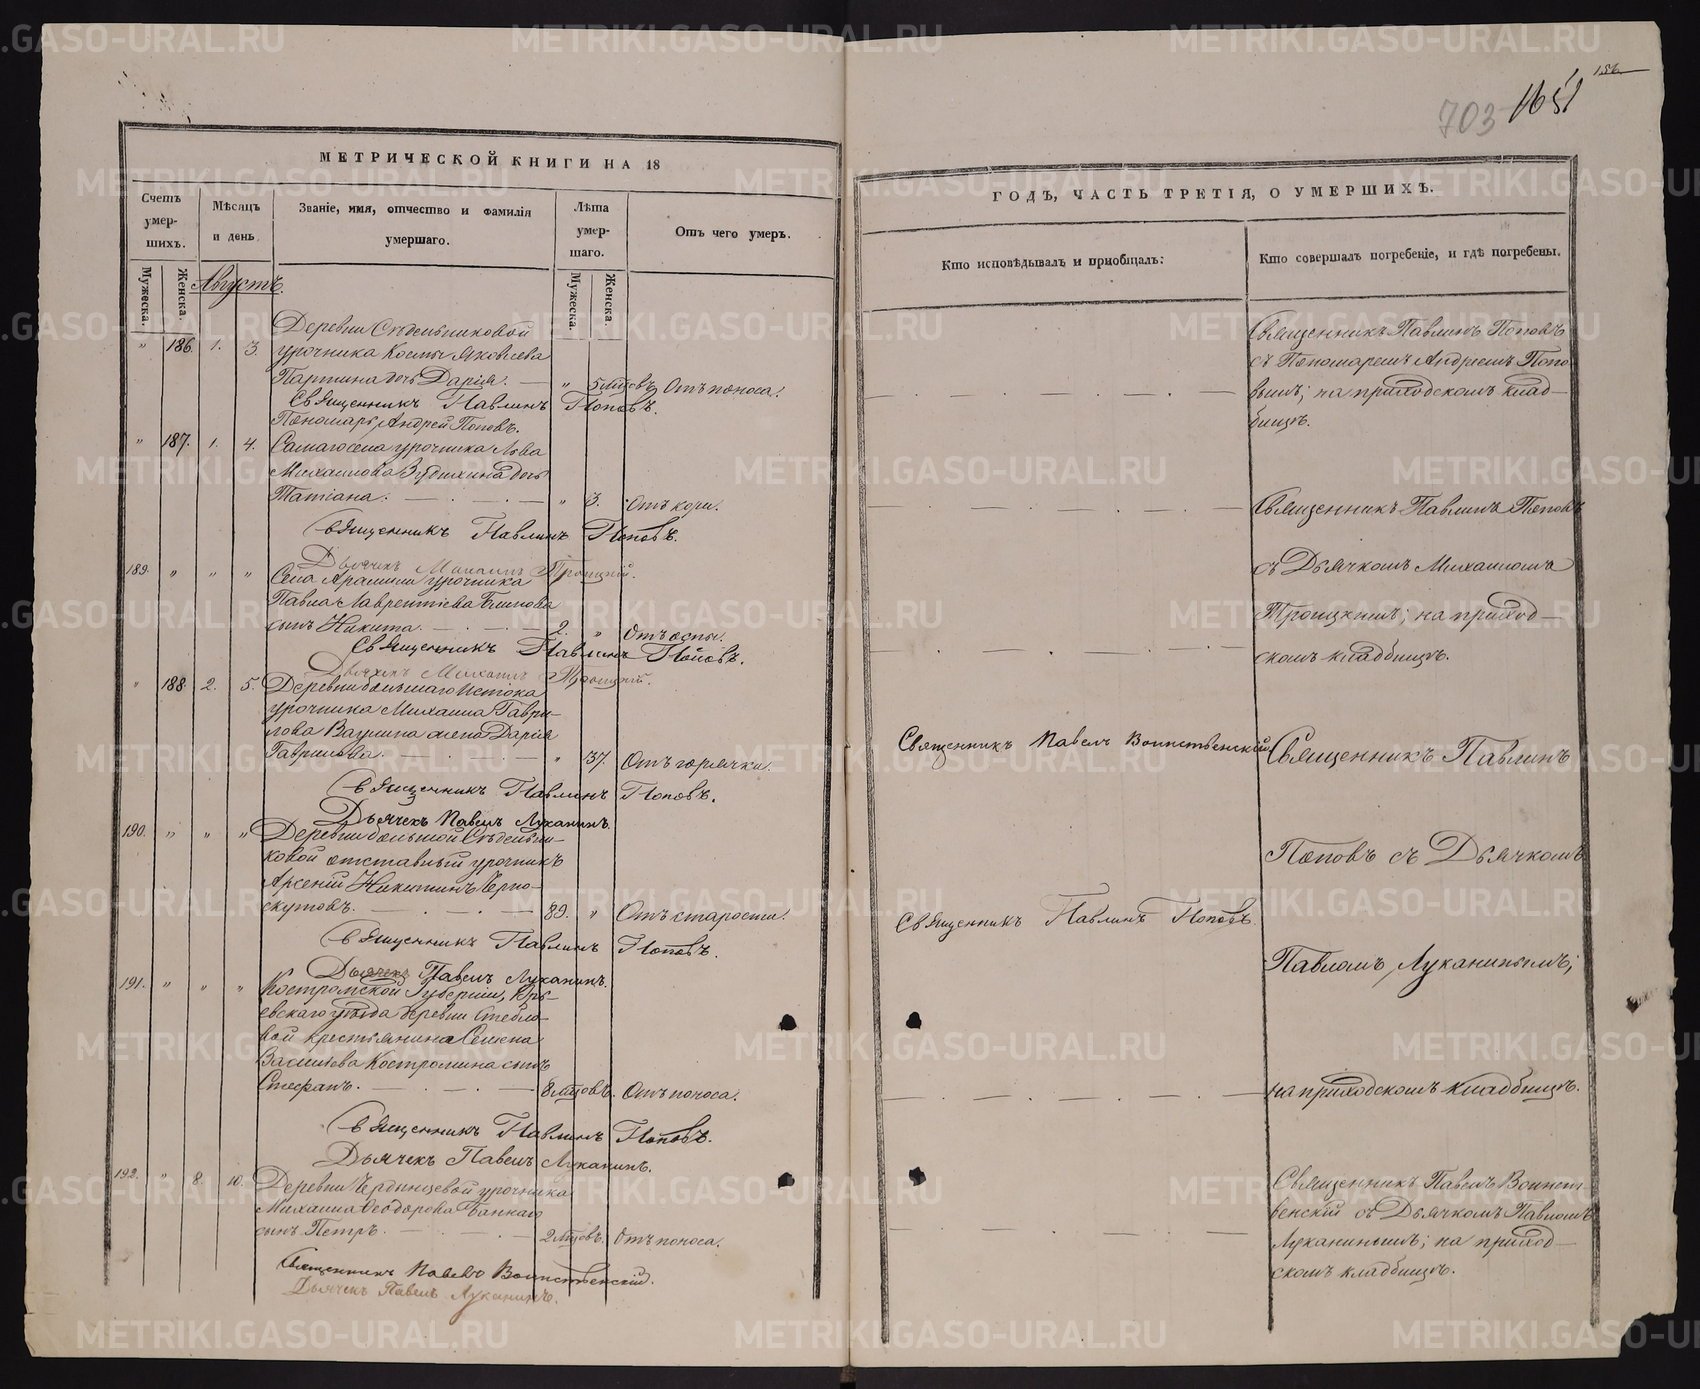 156.
703 1651
МЕТРИЧЕСКОЙ КНИГИ НА 18
Счетъ умер-шихъ.
Мѣсяцъ и день.
Званіе, имя, отчество и фамилія умершаго.
Лѣта умер-шаго.
Отъ чего умеръ.
Мужеска.
Женска.
Мужеска.
Женска.
Августъ.
Деревни Сѣдельниковой
" 186. 1. 3. урочника Космы Яковлева
Партина дочь Дарія. — " 5 мѣсяцовъ Отъ поноса.
Священникъ Павлинъ Поповъ.
Пономарь Андрей Поповъ.
" 187. 1. 4. Самаго села урочника Льва
Михаилова дочь
Татіана. — " 3. Отъ кори.
Священникъ Павлинъ Поповъ.
Дьячекъ Михаилъ Троицкій.
189. " " " Села Арамили урочника
Павла Лаврентіева Блинова
сынъ Никита. — 2. " Отъ оспы.
Священникъ Павлинъ Поповъ.
Дьячекъ Михаилъ Троицкій.
" 188. 2. 5. Деревни большаго Истока
урочника Михаила Гаври-
лова Ваулина жена Дарія
Гаврилова. — " 37. Отъ горячки.
Священникъ Павлинъ Поповъ.
Дьячекъ Павелъ Луканинъ.
190. " " " Деревни большой Сѣдельни-
ковой отставный урочникъ
Арсеній Никитинъ Черно-
скутовъ. — 89. " Отъ старости.
Священникъ Павлинъ Поповъ.
Дьячекъ Павелъ Луканинъ.
191. " " " Костромской Губерніи, Юрь-
евскаго уѣзда деревни
крестьянина Семена
Василіева Костромина сынъ
Стефанъ. — 8 мцовъ. Отъ поноса.
Священникъ Павлинъ Поповъ.
Дьячекъ Павелъ Луканинъ.
192. " 8. 10. Деревни урочника
Михаила Ѳеодорова
сынъ Петръ. — 2 мцовъ. Отъ поноса.
Священникъ Павелъ Воинственскій.
Дьячекъ Павелъ Луканинъ.
ГОДЪ, ЧАСТЬ ТРЕТІЯ, О УМЕРШИХЪ.
Кто исповѣдывалъ и пріобщалъ:
Кто совершалъ погребеніе, и гдѣ погребены.
Священникъ Павлинъ Поповъ
съ Пономаремъ Андреемъ Попо-
вымъ; на приходскомъ клад-
бищѣ.
Священникъ Павлинъ Поповъ
съ Дьячкомъ Михаиломъ
Троицкимъ; на приход-
скомъ кладбищѣ.
Священникъ Павелъ Воинственскій
Священникъ Павлинъ
Поповъ съ Дьячкомъ
Священникъ Павлинъ Поповъ.
Павломъ Луканинымъ;
на приходскомъ кладбищѣ.
Священникъ Павелъ Воинст-
венскій съ Дьячкомъ Павломъ
Луканинымъ; на приход-
скомъ кладбищѣ.
METRIKI.GASO-URAL.RU